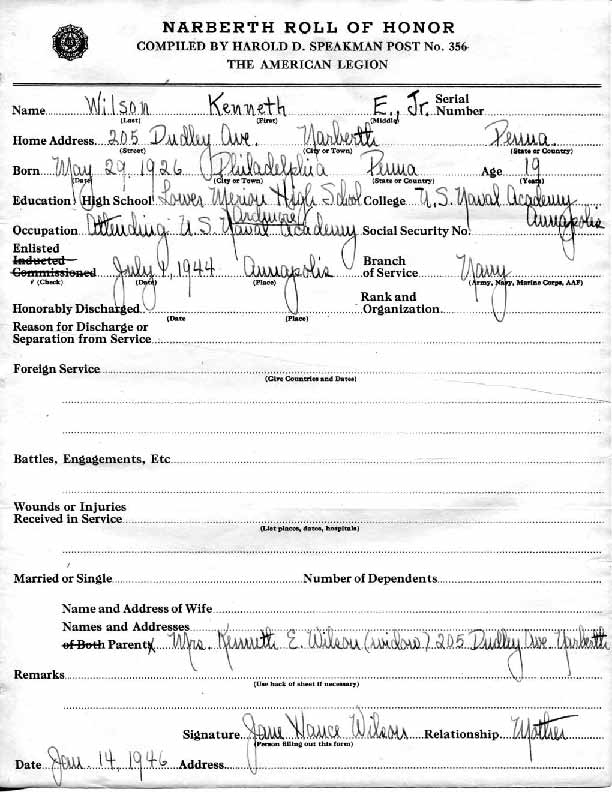 NARBERTH ROLL OF HONOR
COMPILED BY HAROLD D. SPEAKMAN POST No. 356
THE AMERICAN LEGION
Name Wilson Kenneth E., Jr. Serial Number
(Last) (First) (Middle)
Home Address 205 Dudley Ave. Narberth Penna.
(Street) (City or Town) (State or Country)
Born May 29, 1926 Philadelphia Penna Age 19
(Date) (City or Town) (State or Country) (Years)
Education (High School) Lower Merion High School College U.S. Naval Academy
Ardmore Annapolis
Occupation Attending U.S. Naval Academy Social Security No.
Enlisted
Inducted
Commissioned July 1944 Annapolis Branch of Service Navy
(Check) (Date) (Place) (Army, Navy, Marine Corps, AAF)
Honorably Discharged Rank and Organization
(Date (Place)
Reason for Discharge or
Separation from Service
Foreign Service
(Give Countries and Dates)
Battles, Engagements, Etc
Wounds or Injuries
Received in Service
(List places, dates, hospitals)
Married or Single Number of Dependents
Name and Address of Wife
Names and Addresses
of Both Parents Mrs. Kenneth E. Wilson (widow) 205 Dudley Ave Narberth
Remarks
(Use back of sheet if necessary)
Signature Jane Vance Wilson Relationship Mother
(Person filling out this form)
Date Jan. 14, 1946 Address